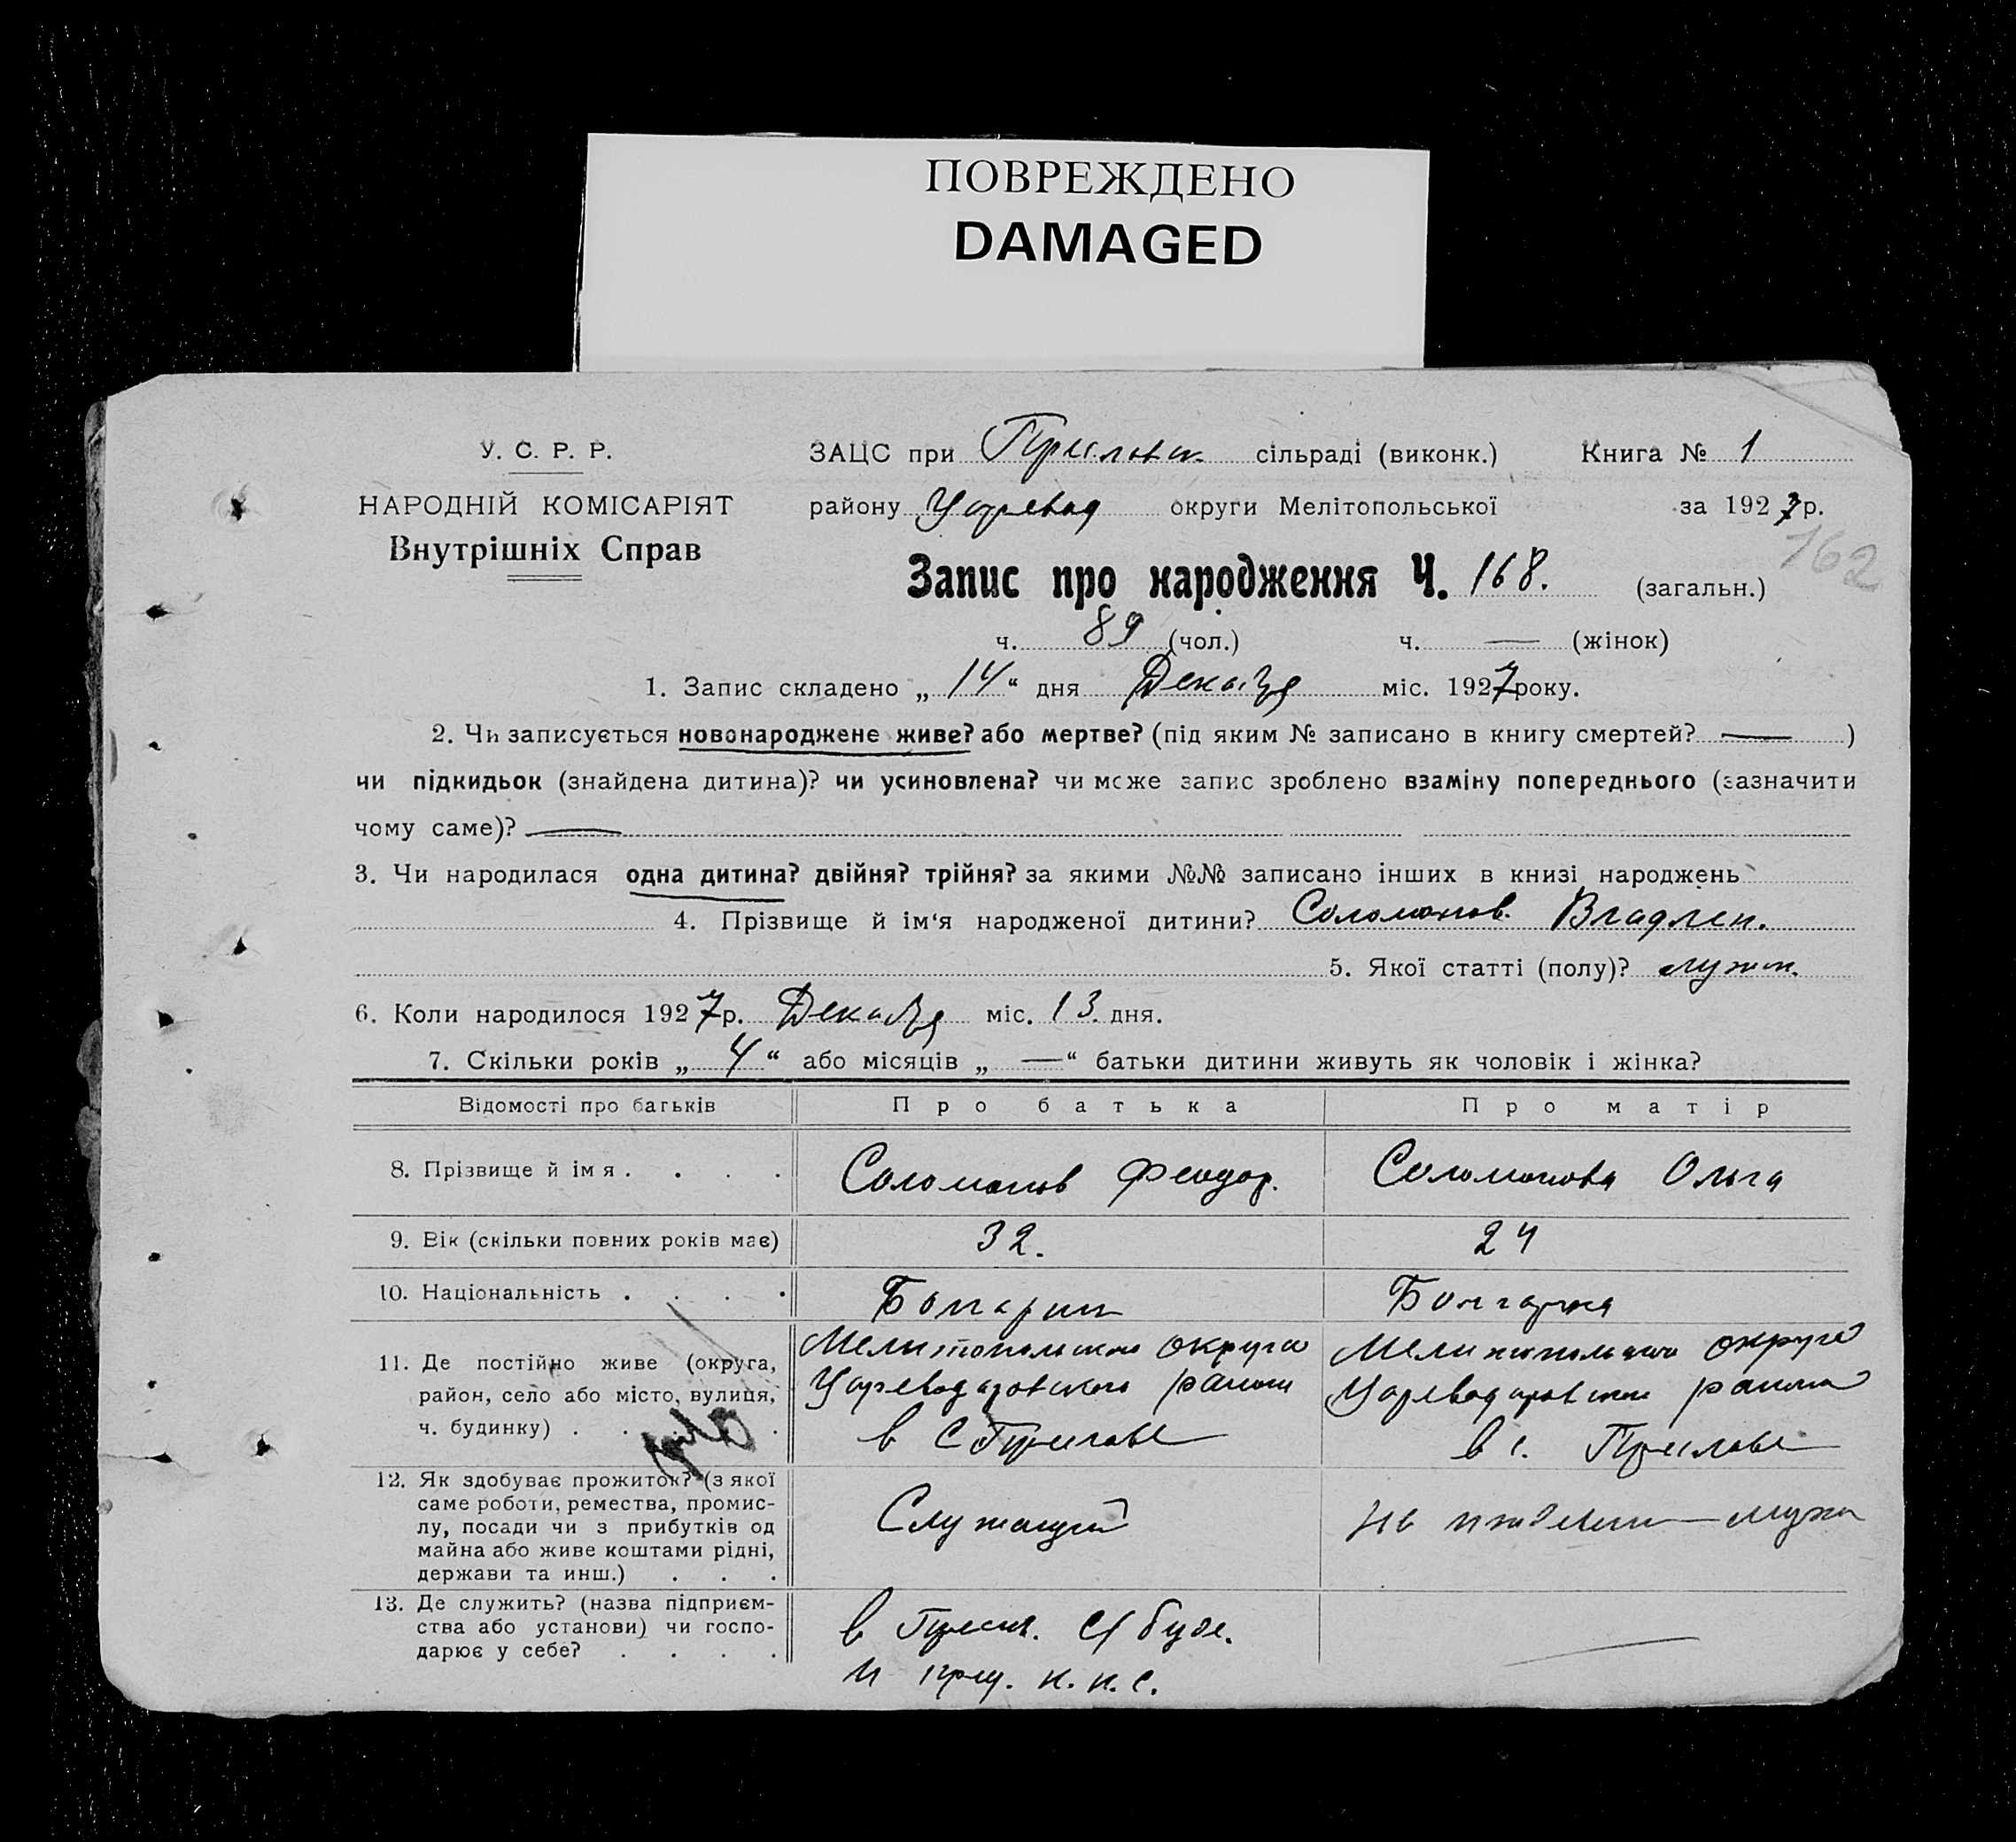 ПОВРЕЖДЕНО
DAMAGED
У. С. Р. Р.
НАРОДНІЙ КОМІСАРІЯТ
Внутрішніх Справ
ЗАЦС при Преславск. сільраді (виконк.) Книга № 1
району Царевод округи Мелітопольської за 1927 р.
162
Запис про народження Ч. 168. (загальн.)
ч. 89 (чол.) ч. — (жінок)
1. Запис складено „ 14 “ дня Декабря міс. 1927 року.
2. Чи записується новонароджене живе? або мертве? (під яким № записано в книгу смертей? — )
чи підкидьок (знайдена дитина)? чи усиновлена? чи може запис зроблено взаміну попереднього (зазначити
чому саме)? —
3. Чи народилася одна дитина? двійня? трійня? за якими №№ записано інших в книзі народжень
4. Прізвище й ім‘я народженої дитини? Соломонов Владлен.
5. Якої статті (полу)? мужск.
6. Коли народилося 1927 р. Декабря міс. 13 дня.
7. Скільки років „ 4 “ або місяців „ — “ батьки дитини живуть як чоловік і жінка?
Відомості про батьків Про батька Про матір
8. Прізвище й ім я . . . . Соломонов Феодор. Соломонова Ольга
9. Вік (скільки повних років має) 32. 24
10. Національність . . . . Болгарин Болгарка
11. Де постійно живе (округа, Мелитопольского округа Мелитопольского округа
район, село або місто, вулиця, Цареводаровского района Цареводаровского района
ч. будинку) . . . . в С Преславе в с. Преславе
12. Як здобуває прожиток? (з якої
саме роботи, ремества, промис-
лу, посади чи з прибутків од Служащий На иждивении мужа
майна або живе коштами рідні,
держави та инш.) . . .
13. Де служить? (назва підприєм-
ства або установи) чи госпо- в Пресл.
дарює у себе? . . . . —
и к.к.с.